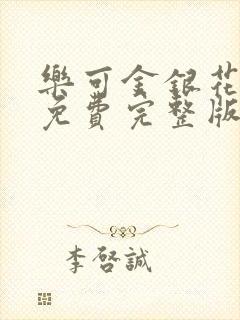 樂可金銀花
免費完整版
李啓誠